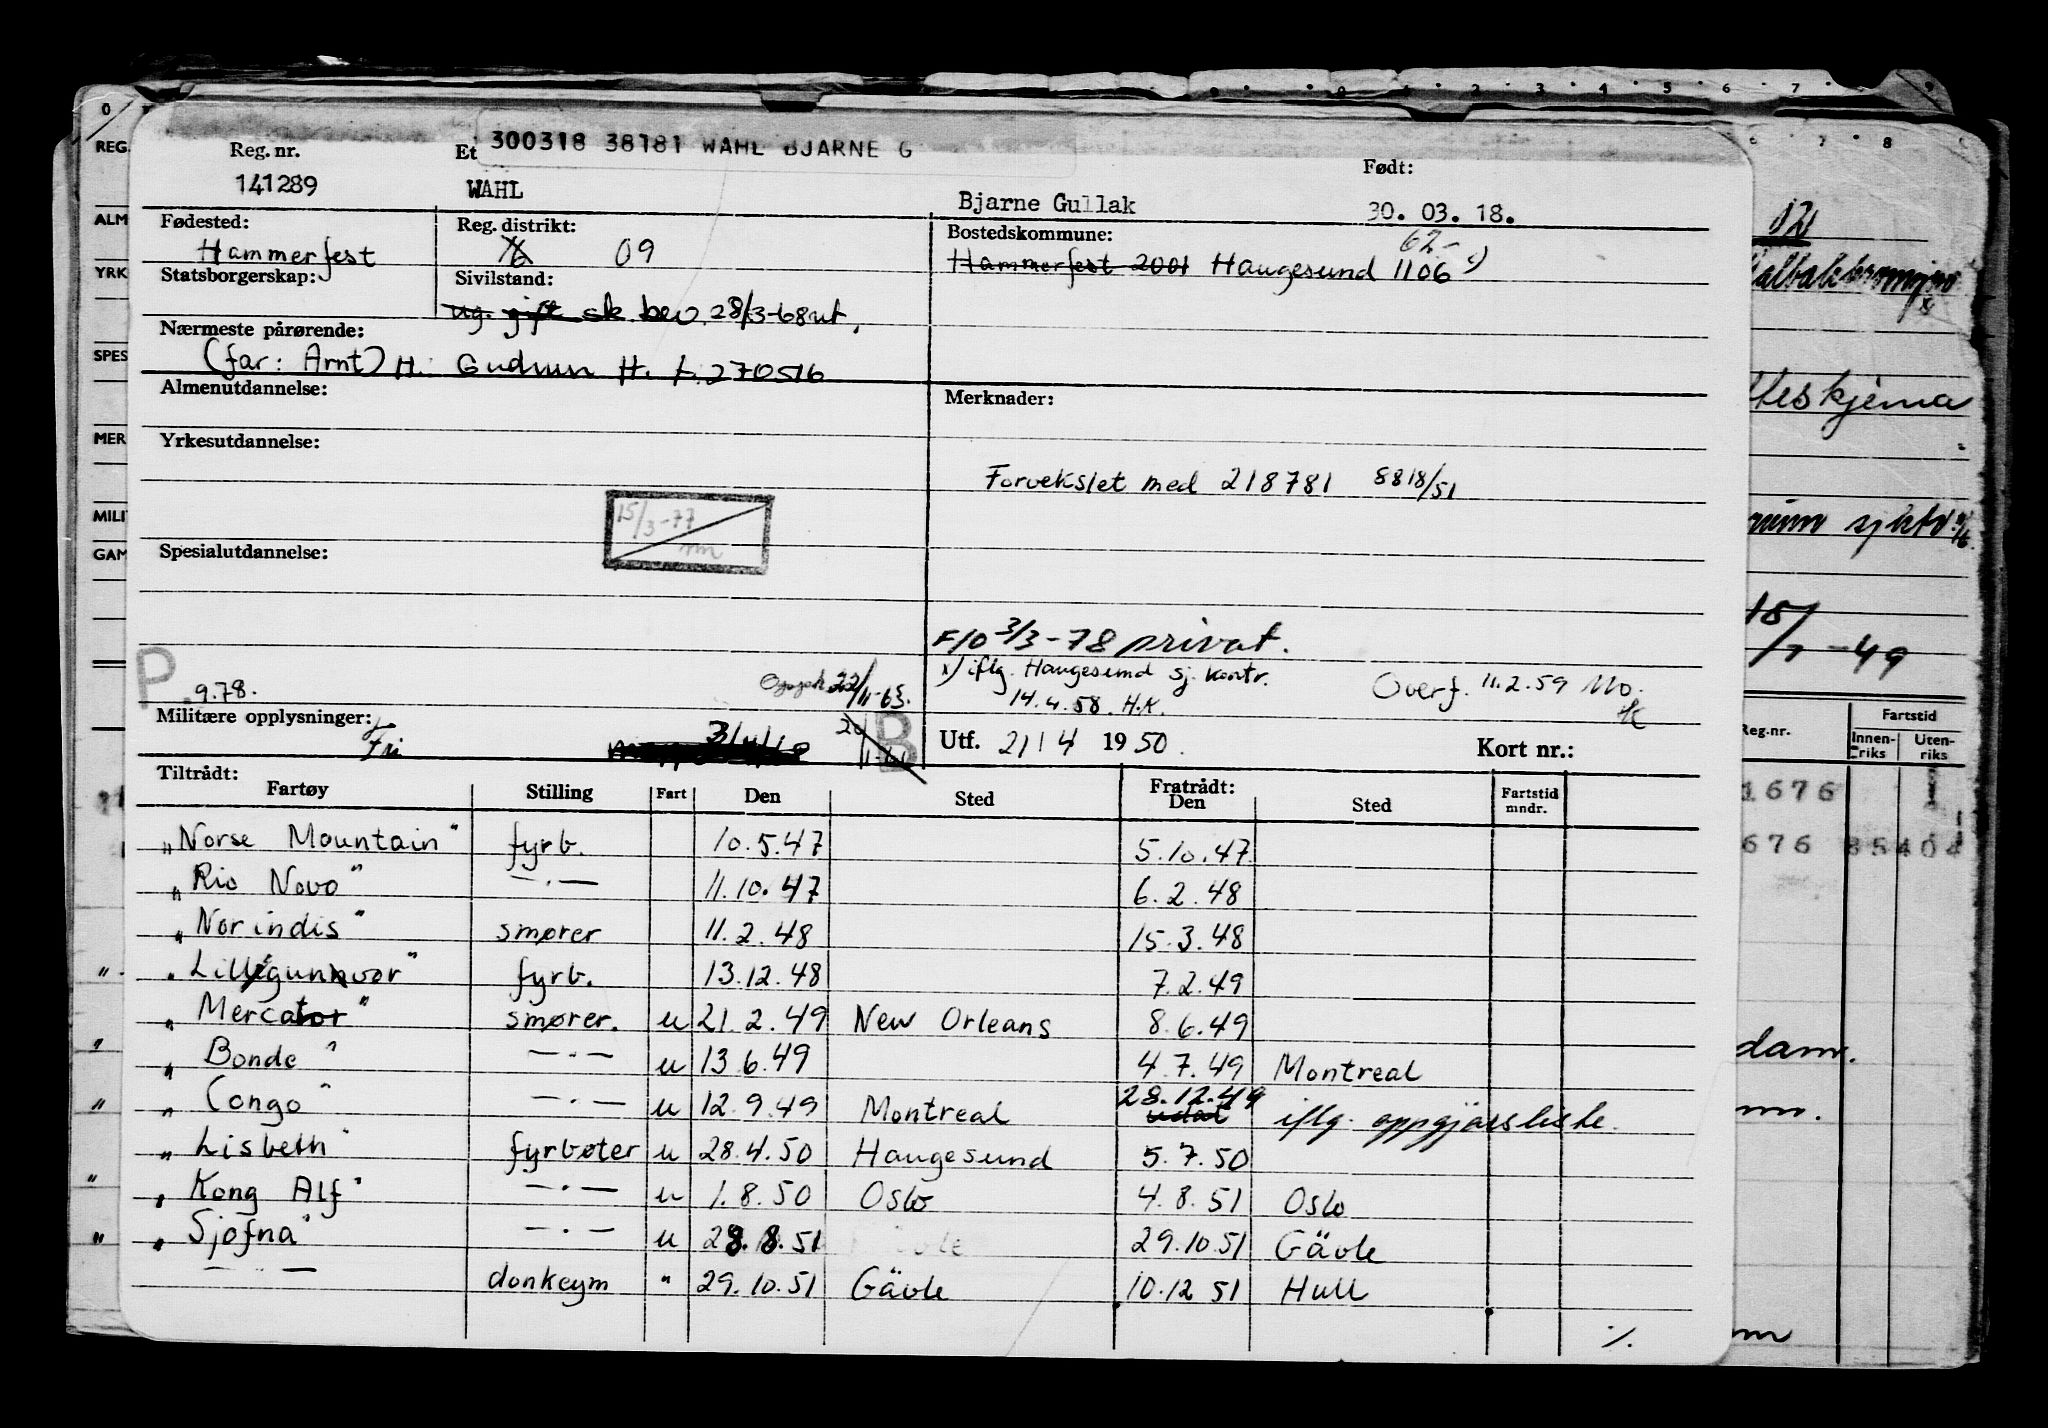 300318 38181 WAHL BJARNE G
Reg. nr. Et Født:
141289 WAHL Bjarne Gullak 30. 03. 18.
Fødested: Reg. distrikt: Bostedskommune:
Hammerfest 09 Hammerfest 2001 Haugesund 1106 x)
62-
Statsborgerskap: Sivilstand:
ug. gift sk. bev. 28/3-68 ut.
Nærmeste pårørende:
(far: Arnt) H: Gudrun H. f. 270516
Almenutdannelse: Merknader:
Yrkesutdannelse:
Forvekslet med 218781 8818/51
15/3-77
Spesialutdannelse:
F/O 3/3-78 privat.
x) iflg. Haugesund sj. kontr.
14.4.58. H.K.
Overf. 11.2.59 Mo.
P. 9.78. 22/11-65.
Militære opplysninger: Fri B Utf. 21/4 1950. Kort nr.:
Tiltrådt: Fratrådt:
Fartøy Stilling Fart Den Sted Den Sted Fartstid mndr.
"Norse Mountain" fyrb. 10.5.47 5.10.47
"Rio Novo" —.— 11.10.47 6.2.48
"Norindis" smører 11.2.48 15.3.48
"Lillygunvor" fyrb. 13.12.48 7.2.49
"Mercator" smører. u 21.2.49 New Orleans 8.6.49
"Bonde" —.— u 13.6.49 4.7.49 Montreal
"Congo" —.— u 12.9.49 Montreal 28.12.49 udat iflg. oppgjørsliste.
"Lisbeth" fyrbøter u 28.4.50 Haugesund 5.7.50
"Kong Alf" —.— u 1.8.50 Oslo 4.8.51 Oslo
"Sjofna" —.— u 28.8.51 29.10.51 Gävle
—.— donkeym " 29.10.51 Gävle 10.12.51 Hull
./.
0
REG.
ALM
YRK
SPES
MER
MILI
GAM
2 3 4 5 6 7 9
7 8
teskjema
15/7-49
Reg.nr. Fartstid
Innenriks Utenriks
1676 1
676 85404
dam.